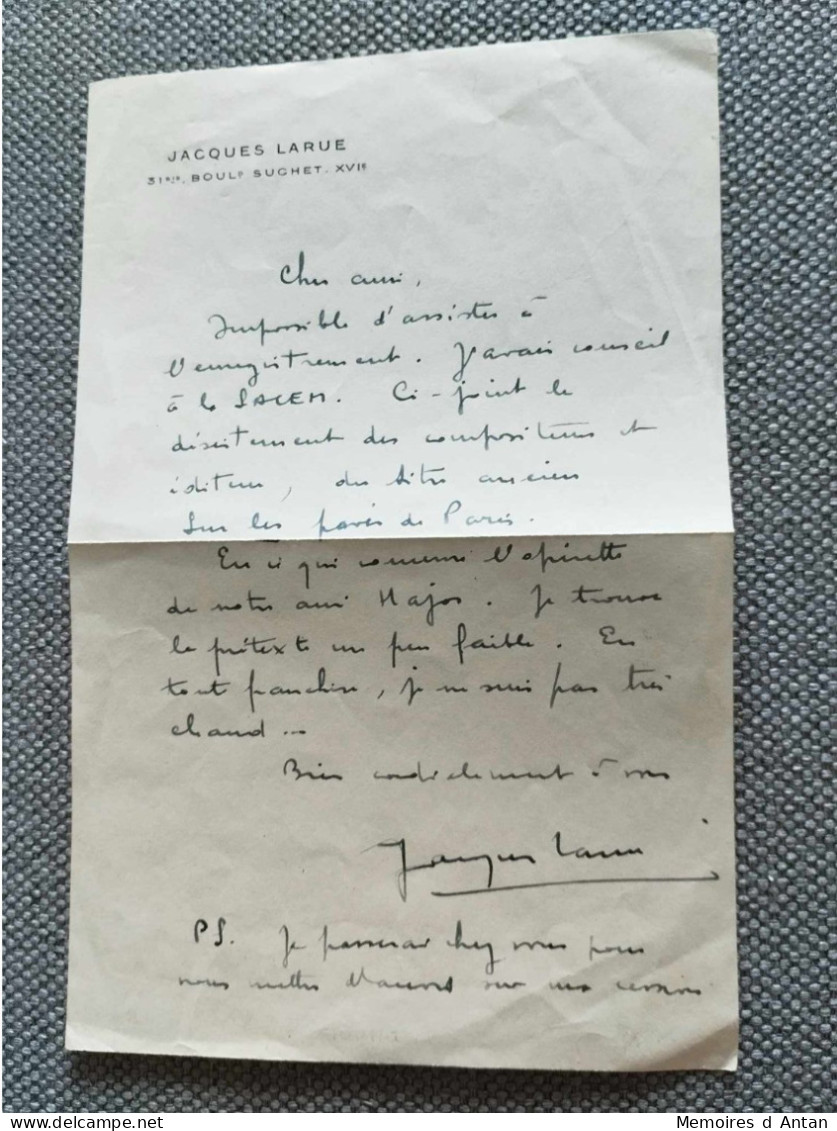 JACQUES LARUE
31 BIS, BOULD SUCHET. XVIE
Cher ami,
Impossible d'assister à
l'enregistrement. J'avais conseil
à la SACEM. Ci-joint le
désistement des compositeurs et
éditeur, du titre ancien
Sur les pavés de Paris.
En ce qui concerne l'opérette
de notre ami Hajos. Je trouve
le prétexte un peu faible. En
toute franchise, je ne suis pas très
chaud...
Bien cordialement à vous
Jacques Larue
PS. Je passerai chez vous pour
nous mettre d'accord sur nos cessions
Memoires d Antan